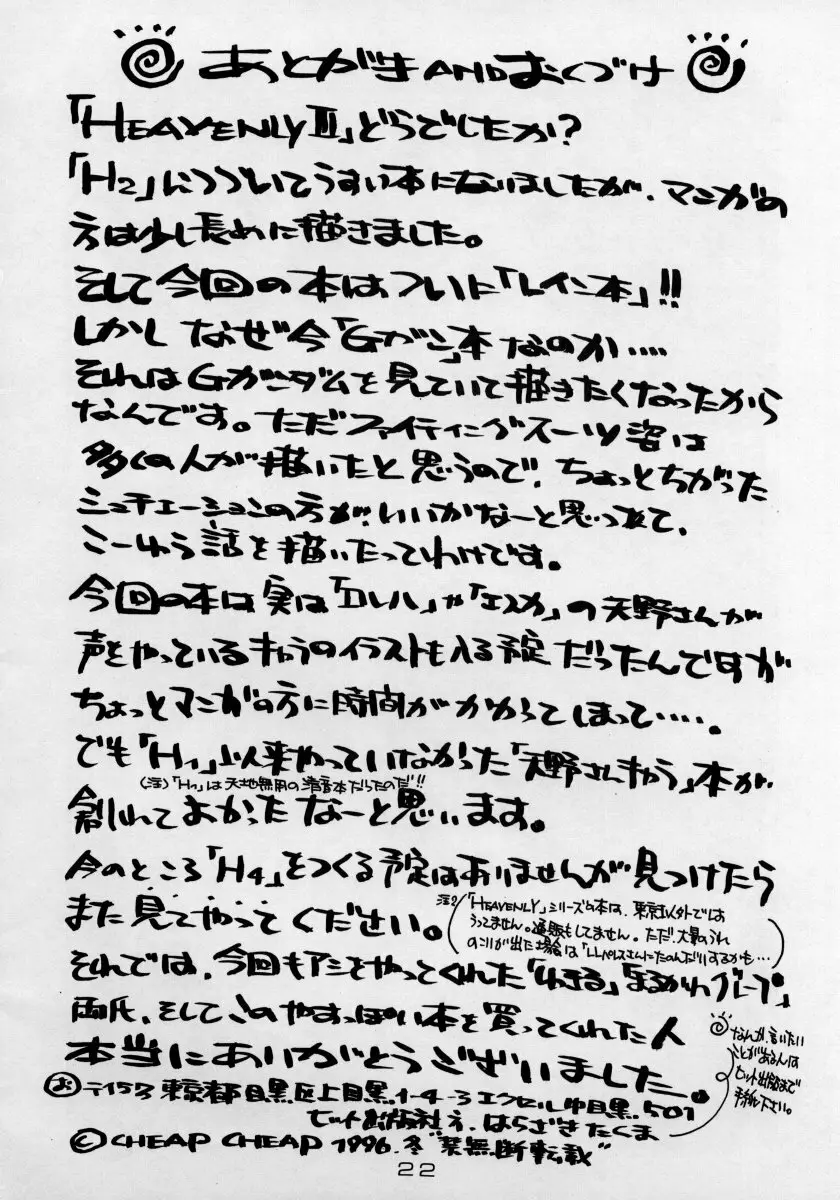 あとがきANDおくづけ
「HEAVENLYⅢ」どうでしたか?
「H2」につづいてうすい本になりましたが、マンガの
方は少し長めに描きました。
そして今回の本はついに「レイン本」!!
しかし なぜ今「Gガン」本 なのか‥‥
それはGガンダムを見ていて描きたくなったから
なんです。ただファイティングスーツ姿は
多くの人が描いたと思うので、ちょっとちがった
シュチェーションの方が、いいかなーと思って、
こーゆう話を描いたってわけです。
今回の本は実は「ロレハ」や「エスカ」の天野さんが
声をやっているキャラのイラストも入る予定だったんですが
ちょっとマンガの方に時間がかかってしまって‥‥。
でも「H1」以来やっていなかった「天野さんキャラ」本が
(注)「H1」は天地無用の清音本だったのだ!!
創れてよかったなーと思います。
今のところ「H4」をつくる予定はありませんが見つけたら
また見てやってください。
注2(「HEAVENLY」シリーズの本は、東京以外では
うってません。通販もしてません。ただ、大量のうれ
のこりが出た場合は「LLパレスさんにたのんだりするかも…)
それでは、今回もアシをやってくれた「ゆきる」「まるかわグループ」
両氏、そしてこのやすっぽい本を買ってくれた人
本当にありがとうございました。
なんか、言いたい
ことがあるんは
ヒット出版まで
手紙下さい。
お 〒153 東京都目黒区上目黒1-4-3エクセル中目黒501
ヒット出版社方、はらざきたくま
©CHEAP CHEAP 1996.冬 "禁無断転載"
22